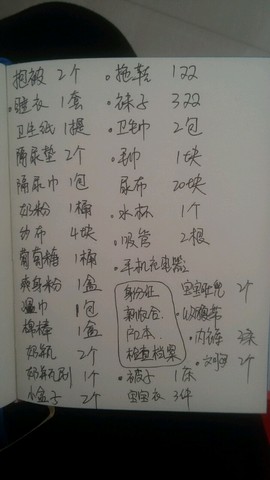 抱被 2个
睡衣 1套
卫生纸 1提
隔尿垫 2个
隔尿巾 1包
奶粉 1桶
纱布 4块
葡萄糖 1桶
爽身粉 1盒
湿巾 1包
棉棒 1盒
奶瓶 2个
奶瓶刷 1个
小盒子 2个
拖鞋 1双
袜子 3双
卫生巾 2包
毛巾 1块
尿布 20块
水杯 1个
吸管 2根
手机充电器
身份证
新农合
户口本
检查档案
宝宝肚兜 2个
收腹带
内裤 3条
被子 1床
宝宝衣 3件